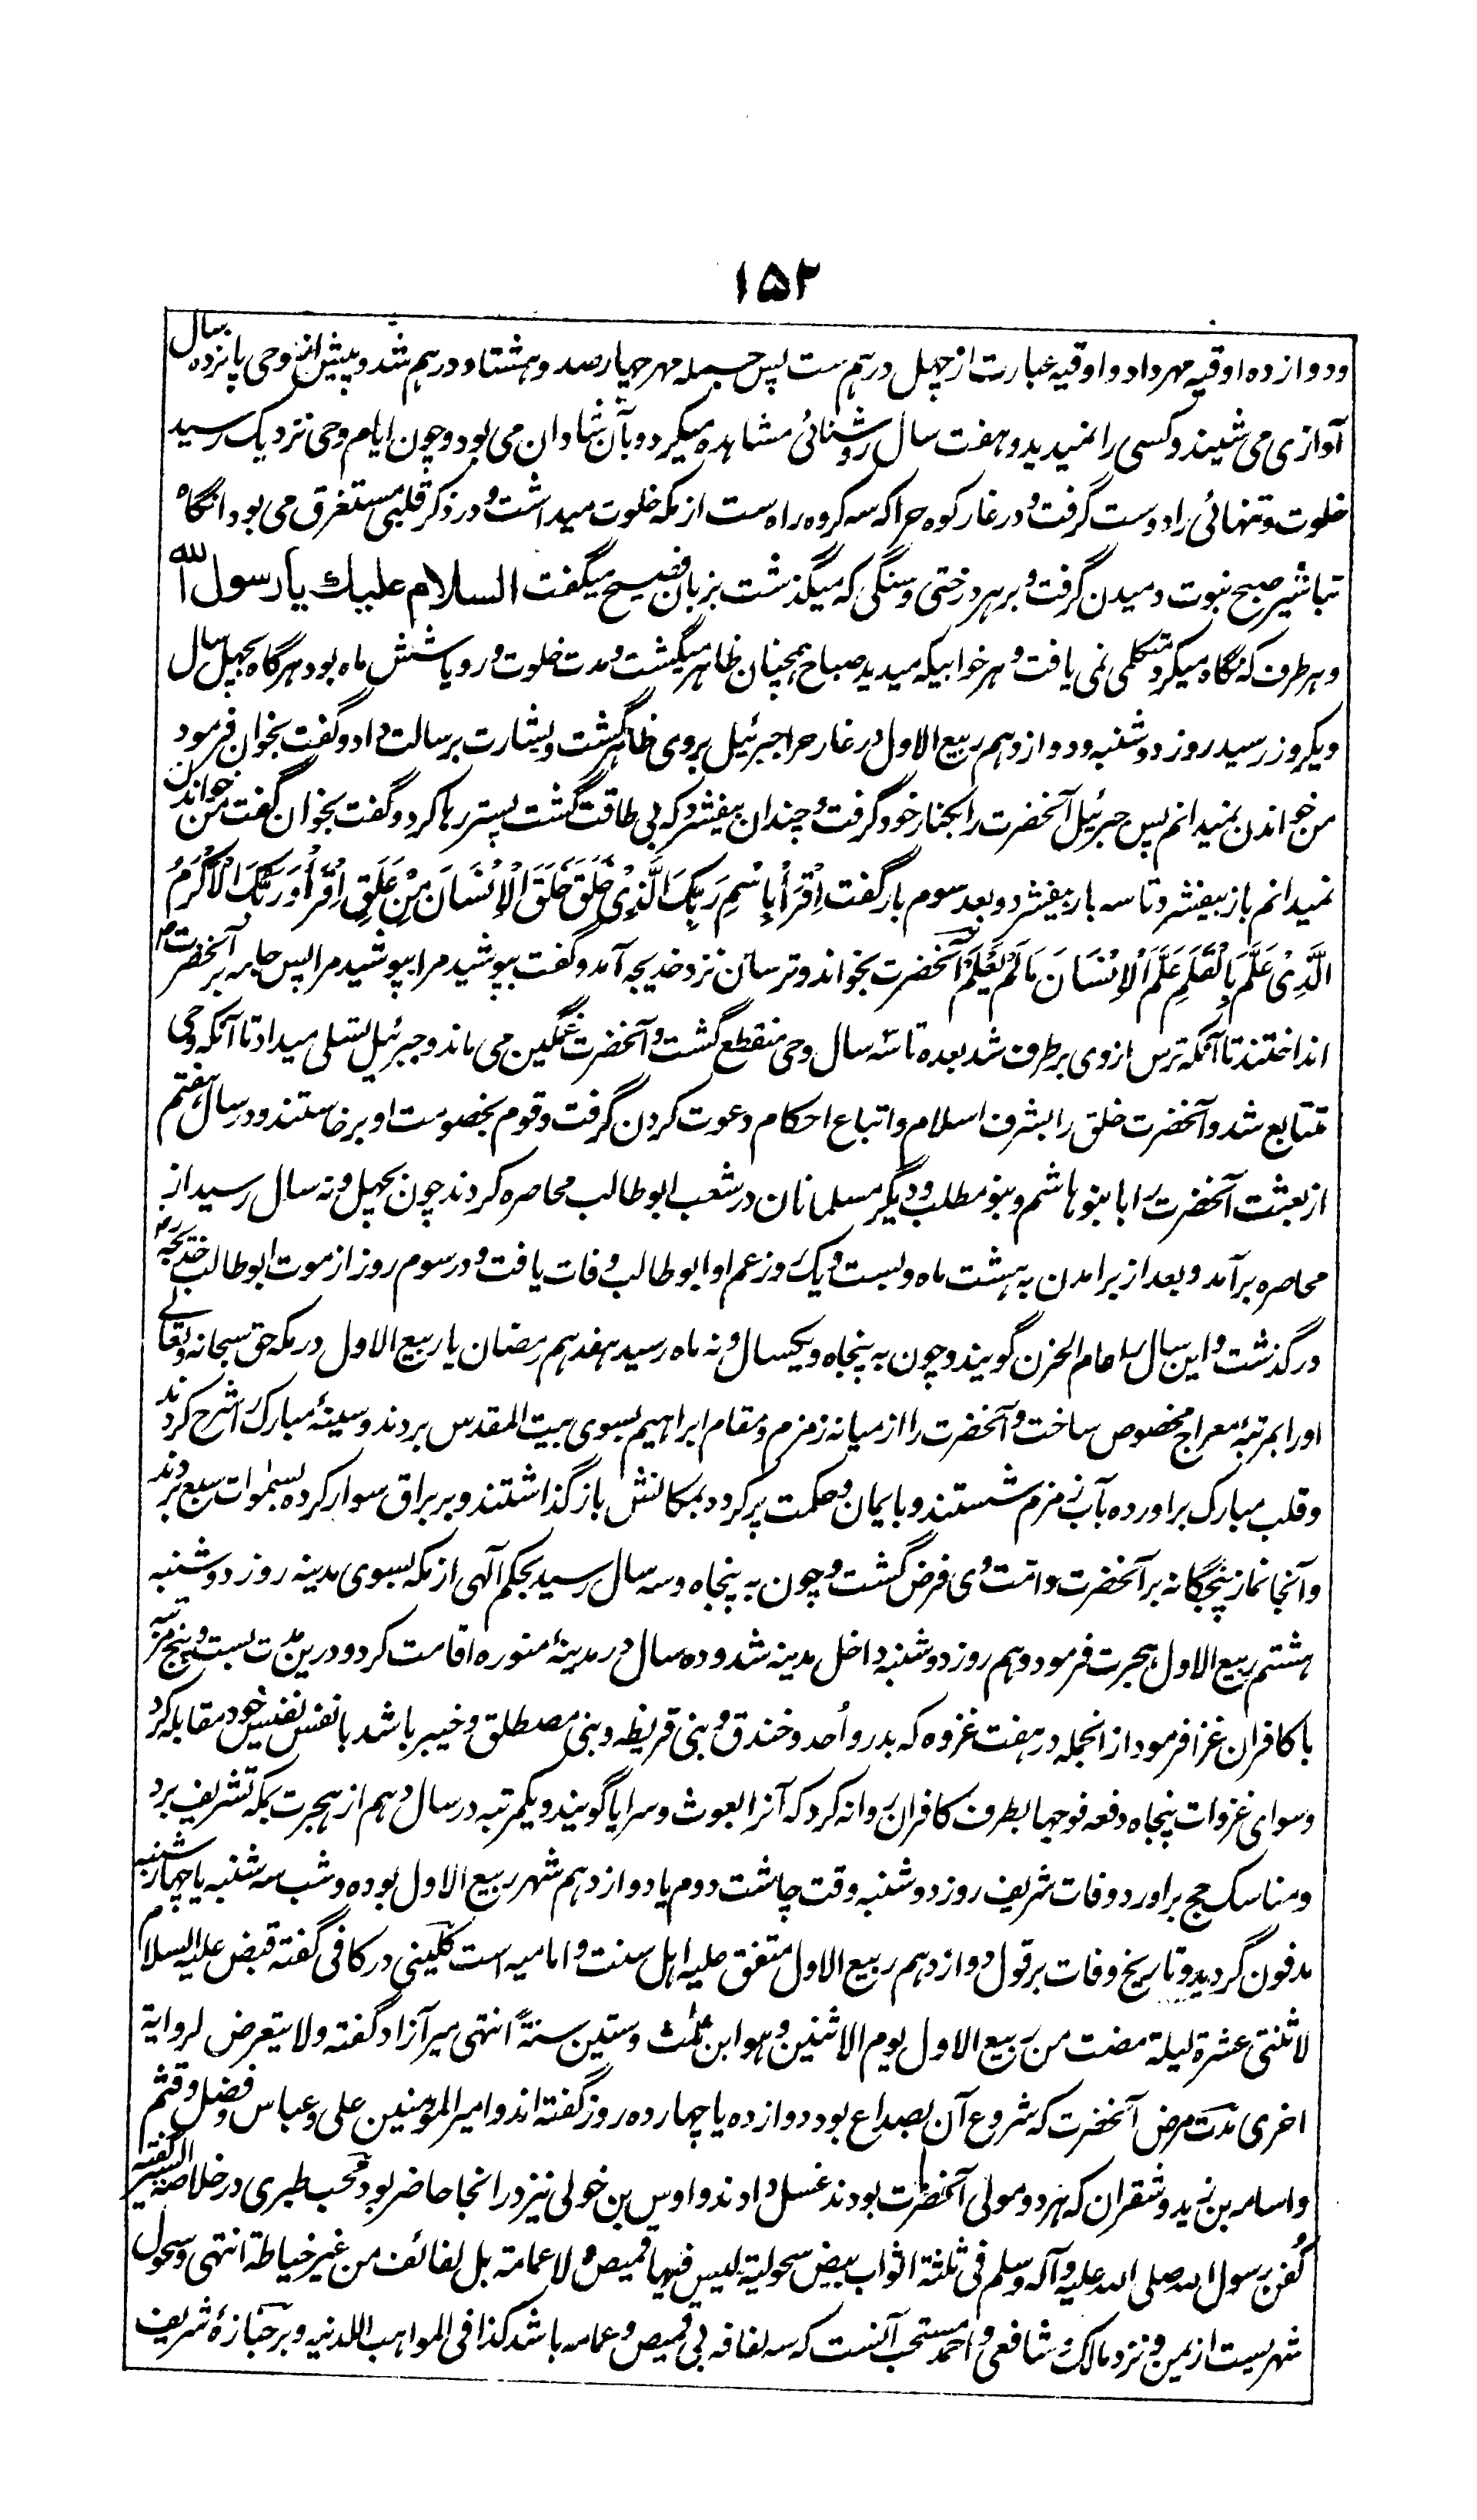 ۱۵۲
ودوازده اوقیه مهر داد و اوقیه عبارت از چهل درهم ست پس جمله مهر چهارصد و هشتاد درهم شد و پیش از وحی پانزده سال
آوازی می شنید و کسی را نمیدید و هفت سال روشنائی مشاهده میکرد و بآن شادان می بود و چون ایام وحی نزدیک رسید
خلوت و تنهائی را دوست گرفت و در غار کوه حرا که سه کروه راه ست از مکه خلوت میداشت و در ذکر قلبی مستغرق می بود انگاه
تباشیر صبح نبوت دمیدن گرفت و بر هر درختی و سنگی که میگذشت بزبان فصیح میگفت السلام علیك یا رسول الله
و هر طرف که نگاه میکرد متکلمی نمی یافت و هر خوابیکه میدید صباح همچنان ظاهر میگشت و مدت خلوت و رویا شش ماه بود هرگاه بچهل سال
و یکروز رسید روز دوشنبه و دوازدهم ربیع الاول در غار حرا جبرئیل بروی ظاهر گشت و بشارت برسالت داد و گفت بخوان فرمود
من خواندن نمیدانم پس جبرئیل آنحضرت را بکنار خود گرفت و چندان بیفشرد که بی طاقت گشت پستر رها کرد و گفت بخوان گفت من خواندن
نمیدانم باز بیفشرد تا سه بار بیفشرد و بعد سوم بار گفت اِقْرَأْ بِاسْمِ رَبِّكَ الَّذِیْ خَلَقَ خَلَقَ الْاِنْسَانَ مِنْ عَلَقٍ اِقْرَأْ وَرَبُّكَ الْاَكْرَمُ
الَّذِیْ عَلَّمَ بِالْقَلَمِ عَلَّمَ الْاِنْسَانَ مَا لَمْ یَعْلَمْ آنحضرت بخواند و ترسان نزد خدیجه آمد و گفت بپوشید مرا بپوشید مرا پس جامه بر آنحضرت
انداختند تا آنکه ترس از وی برطرف شد بعده تا سه سال وحی منقطع گشت و آنحضرت غمگین می ماند و جبرئیل تسلی میداد تا آنکه وحی
متتابع شد و آنحضرت خلق را بشرف اسلام و اتباع احکام دعوت کردن گرفت و قوم بخصومت او برخاستند و در سال هفتم
از بعثت آنحضرت را با بنو هاشم و بنو مطلب و دیگر مسلمانان در شعب ابوطالب محاصره کردند چون بچهل و نه سال رسید از
محاصره برآمد و بعد از برامدن به هشت ماه و بست و یک روز عم او ابوطالب وفات یافت و در سوم روز از موت ابوطالب خدیجه
درگذشت و این سال را عام الحزن گویند و چون به پنجاه و یکسال و نه ماه رسید هفدهم رمضان یا ربیع الاول در مکه حق سبحانه و تعالی
او را بمرتبهٔ معراج مخصوص ساخت و آنحضرت را از میانه زمزم و مقام ابراهیم بسوی بیت المقدس بردند و سینهٔ مبارک را شرح کردند
و قلب مبارک براورده بآب زمزم شستند و بایمان و حکمت پر کرده بمکانش باز گذاشتند و بر براق سوار کرده بسموات سبع بردند
و آنجا نماز پنجگانه بر آنحضرت و امت وی فرض گشت و چون به پنجاه و سه سال رسید بحکم آلهی از مکه بسوی مدینه روز دوشنبه
هشتم ربیع الاول هجرت فرمود و هم روز دوشنبه داخل مدینه شد و ده سال در مدینهٔ منوره اقامت کرد و درین مدت بست و پنج مرتبه
با کافران غزا فرمود از انجمله در هفت غزوه که بدر و اُحد و خندق و بنی قریظه و بنی مصطلق و خیبر باشد بانفس نفیس خود مقابله کرد
و سوای غزوات پنجاه دفعه فوجها بطرف کافران روانه کرد که آنرا بعوث و سرایا گویند و یکمرتبه در سال دهم از هجرت بمکه تشریف برد
و مناسک حج براورد و وفات شریف روز دوشنبه وقت چاشت دوم یا دوازدهم شهر ربیع الاول بوده و شب سه شنبه یا چهارشنبه
مدفون گردید و تاریخ وفات بر قول دوازدهم ربیع الاول متفق علیه اهل سنت و امامیه است کلینی در کافی گفته قبض علیه السلام
لاثنتی عشرة لیلة مضت من ربیع الاول یوم الاثنین و هو ابن ثلٰث وستین سنةً انتهی میر آزاد گفته ولا یتعرض لروایة
اخری مدت مرض آنحضرت که شروع آن بصداع بود دوازده یا چهارده روز گفته اند و امیر المؤمنین علی و عباس و فضل و قثم
و اسامه بن زید و شقران که هر دو مولی آنحضرت بودند غسل دادند و اوس بن خولی نیز در انجا حاضر بود محب طبری در خلاصة السیر گفته
کُفن رسول الله صلی الله علیه وآله وسلم فی ثلثة اثواب بیض سحولیة لیس فیها قمیص ولا عمامة بل لفائف من غیر خیاطة انتهی و سحول
شهریست از یمن و نزد مالک و شافعی و احمد مستحب آنست که سه لفافه بی قمیص و عمامه باشد کذا فی المواهب اللدنیه و بر جنازهٔ شریف